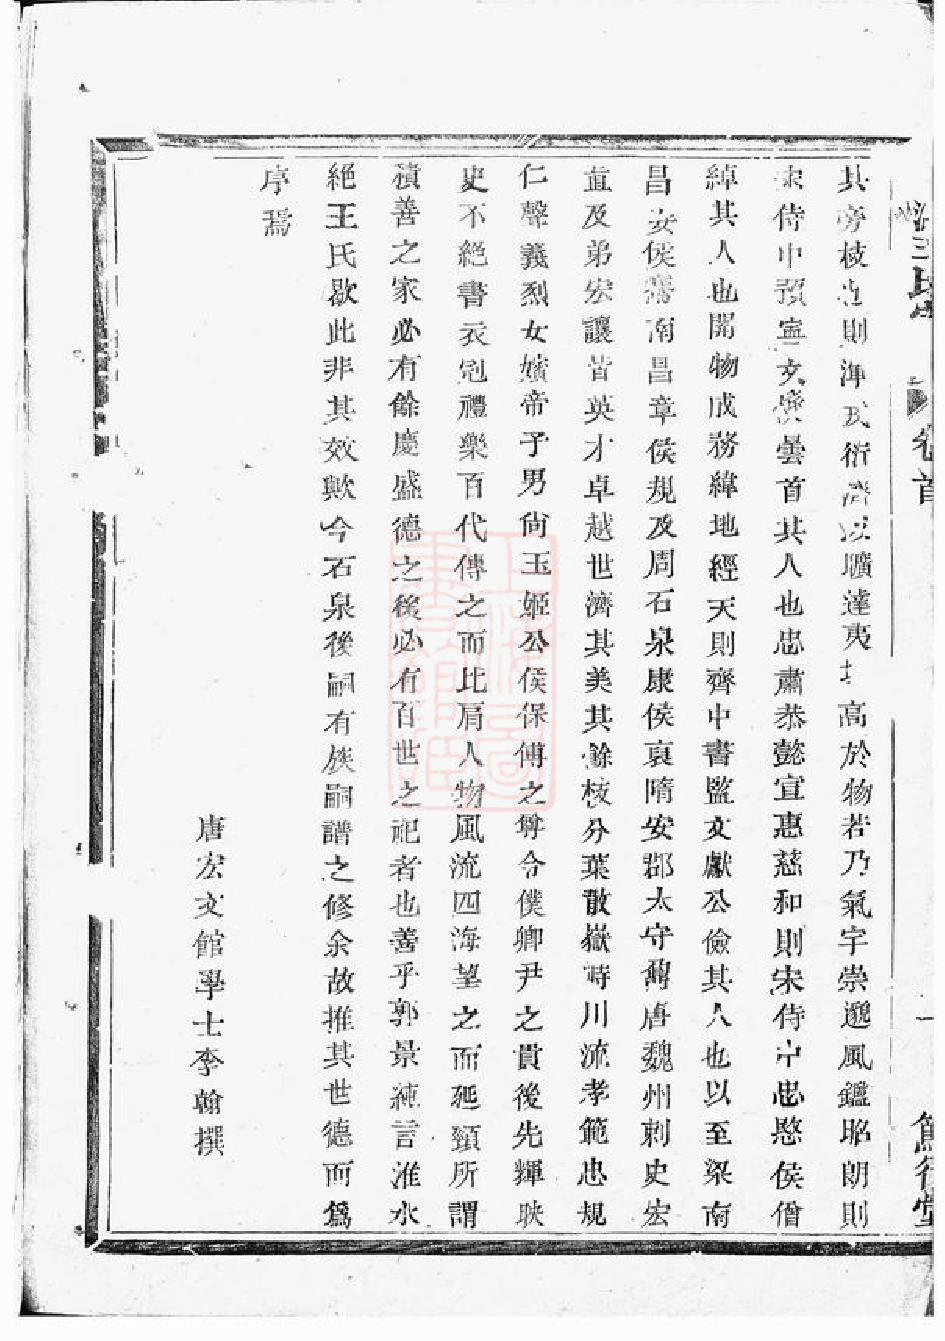 其旁枝 則渾戎衍 曠達夷 高於物若乃氣宇崇邈風鑑昭朗則
宋侍中預寧文 曇首其人也忠肅恭懿宣惠慈和則宋侍中忠愍侯僧
綽其人也開物成務緯地經天則齊中書監文獻公儉其人也以至梁南
昌安侯騫南昌章侯規及周石泉康侯裒隋安郡太守鼒唐魏州刺史宏
直及弟宏讓皆英才卓越世濟其美其餘枝分葉散嶽峙川流孝範忠規
仁聲義烈女嬪帝子男尚王姬公侯保傅之尊令僕卿尹之貴後先輝映
史不絕書衣冠禮樂百代傳之而比肩人物風流四海望之而延頸所謂
積善之家必有餘慶盛德之後必有百世之祀者也善乎郭景純言淮水
絕王氏歇此非其效歟今石泉後嗣有族嗣譜之修余故推其世德而爲
序焉
唐宏文館學士李翰撰
卷首
一